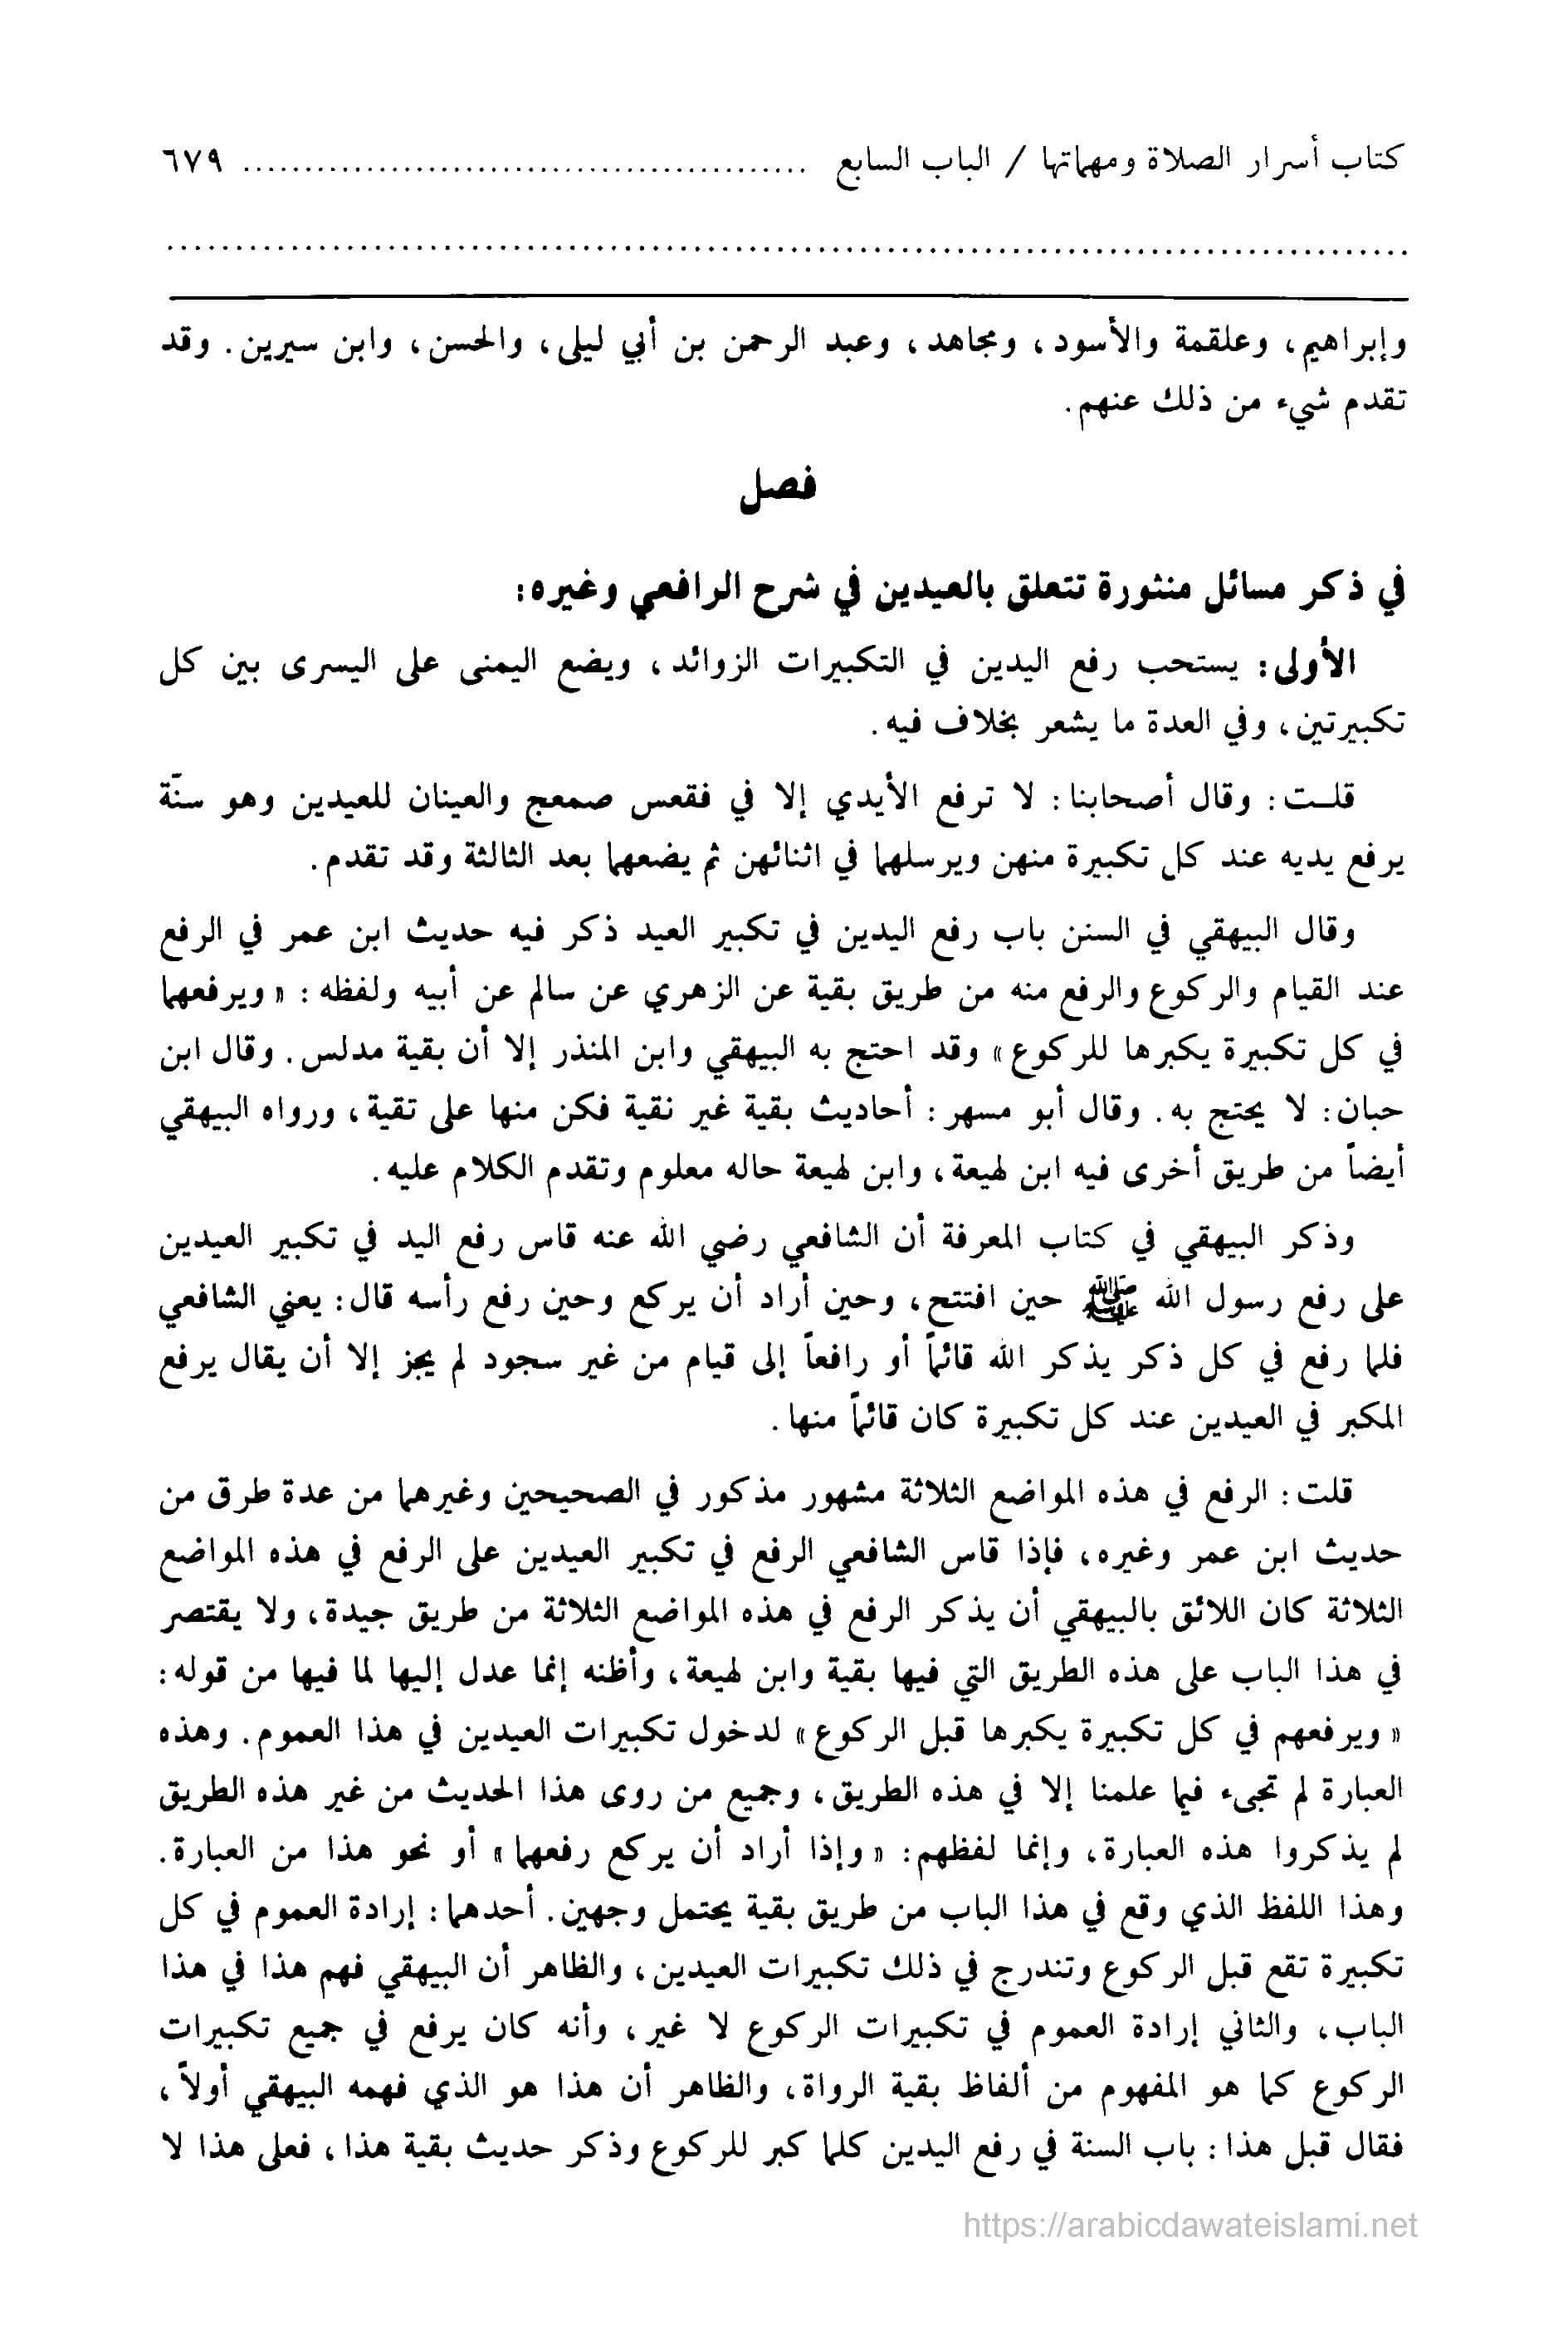 كتاب أسرار الصلاة ومهماتها / الباب السابع ............................................. ٦٧٩
..........................................................................................
وإبراهيم، وعلقمة والأسود، ومجاهد، وعبد الرحمن بن أبي ليلى، والحسن، وابن سيرين. وقد
تقدم شيء من ذلك عنهم.
فصل
في ذكر مسائل منثورة تتعلق بالعيدين في شرح الرافعي وغيره:
الأولى: يستحب رفع اليدين في التكبيرات الزوائد، ويضع اليمنى على اليسرى بين كل
تكبيرتين، وفي العدة ما يشعر بخلاف فيه.
قلـت: وقال أصحابنا: لا ترفع الأيدي إلا في فقعس صمعج والعينان للعيدين وهو سنّة
يرفع يديه عند كل تكبيرة منهن ويرسلهما في اثنائهن ثم يضعهما بعد الثالثة وقد تقدم.
وقال البيهقي في السنن باب رفع اليدين في تكبير العيد ذكر فيه حديث ابن عمر في الرفع
عند القيام والركوع والرفع منه من طريق بقية عن الزهري عن سالم عن أبيه ولفظه: « ويرفعهما
في كل تكبيرة يكبرها للركوع» وقد احتج به البيهقي وابن المنذر إلا أن بقية مدلس. وقال ابن
حبان: لا يحتج به. وقال أبو مسهر: أحاديث بقية غير نقية فكن منها على تقية، ورواه البيهقي
أيضاً من طريق أخرى فيه ابن لهيعة، وابن لهيعة حاله معلوم وتقدم الكلام عليه.
وذكر البيهقي في كتاب المعرفة أن الشافعي رضي الله عنه قاس رفع اليد في تكبير العيدين
على رفع رسول الله ﷺ حين افتتح، وحين أراد أن يركع وحين رفع رأسه قال: يعني الشافعي
فلما رفع في كل ذكر يذكر الله قائماً أو رافعاً إلى قيام من غير سجود لم يجز إلا أن يقال يرفع
المكبر في العيدين عند كل تكبيرة كان قائماً منها.
قلت: الرفع في هذه المواضع الثلاثة مشهور مذكور في الصحيحين وغيرهما من عدة طرق من
حديث ابن عمر وغيره، فإذا قاس الشافعي الرفع في تكبير العيدين على الرفع في هذه المواضع
الثلاثة كان اللائق بالبيهقي أن يذكر الرفع في هذه المواضع الثلاثة من طريق جيدة، ولا يقتصر
في هذا الباب على هذه الطريق التي فيها بقية وابن لهيعة، وأظنه إنما عدل إليها لما فيها من قوله:
« ويرفعهم في كل تكبيرة يكبرها قبل الركوع» لدخول تكبيرات العيدين في هذا العموم. وهذه
العبارة لم تجىء فيما علمنا إلا في هذه الطريق، وجميع من روى هذا الحديث من غير هذه الطريق
لم يذكروا هذه العبارة، وإنما لفظهم: « وإذا أراد أن يركع رفعهما» أو نحو هذا من العبارة.
وهذا اللفظ الذي وقع في هذا الباب من طريق بقية يحتمل وجهين. أحدهما: إرادة العموم في كل
تكبيرة تقع قبل الركوع وتندرج في ذلك تكبيرات العيدين، والظاهر أن البيهقي فهم هذا في هذا
الباب، والثاني إرادة العموم في تكبيرات الركوع لا غير، وأنه كان يرفع في جميع تكبيرات
الركوع كما هو المفهوم من ألفاظ بقية الرواة، والظاهر أن هذا هو الذي فهمه البيهقي أولاً،
فقال قبل هذا: باب السنة في رفع اليدين كلما كبر للركوع وذكر حديث بقية هذا، فعلى هذا لا
https://arabicdawateislami.net